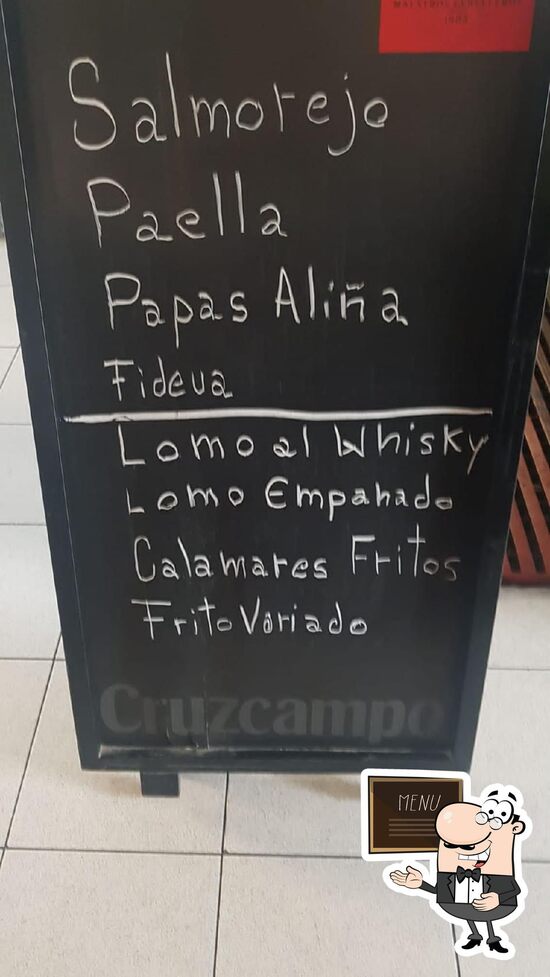 MAESTROS CERVECEROS
1904
Salmorejo
Paella
Papas Aliña
Fideua
Lomo al Whisky
Lomo Empanado
Calamares Fritos
Frito Variado
Cruzcampo
MENU